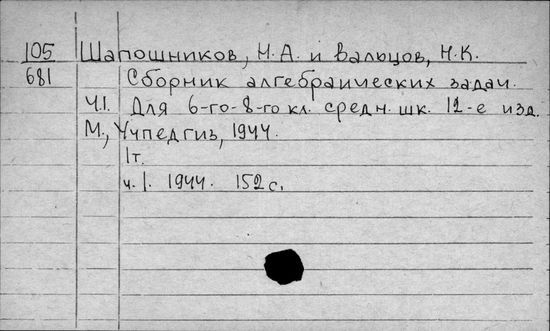 105 Шапошников, Н.А. и Вальцов, Н.К.
681 Сборник алгебраических задач.
Ч.I. Для 6-го-8-го кл. средн. шк. 12-е изд.
М., Учпедгиз, 1944.
1т.
ч.1. 1944. 152 с.